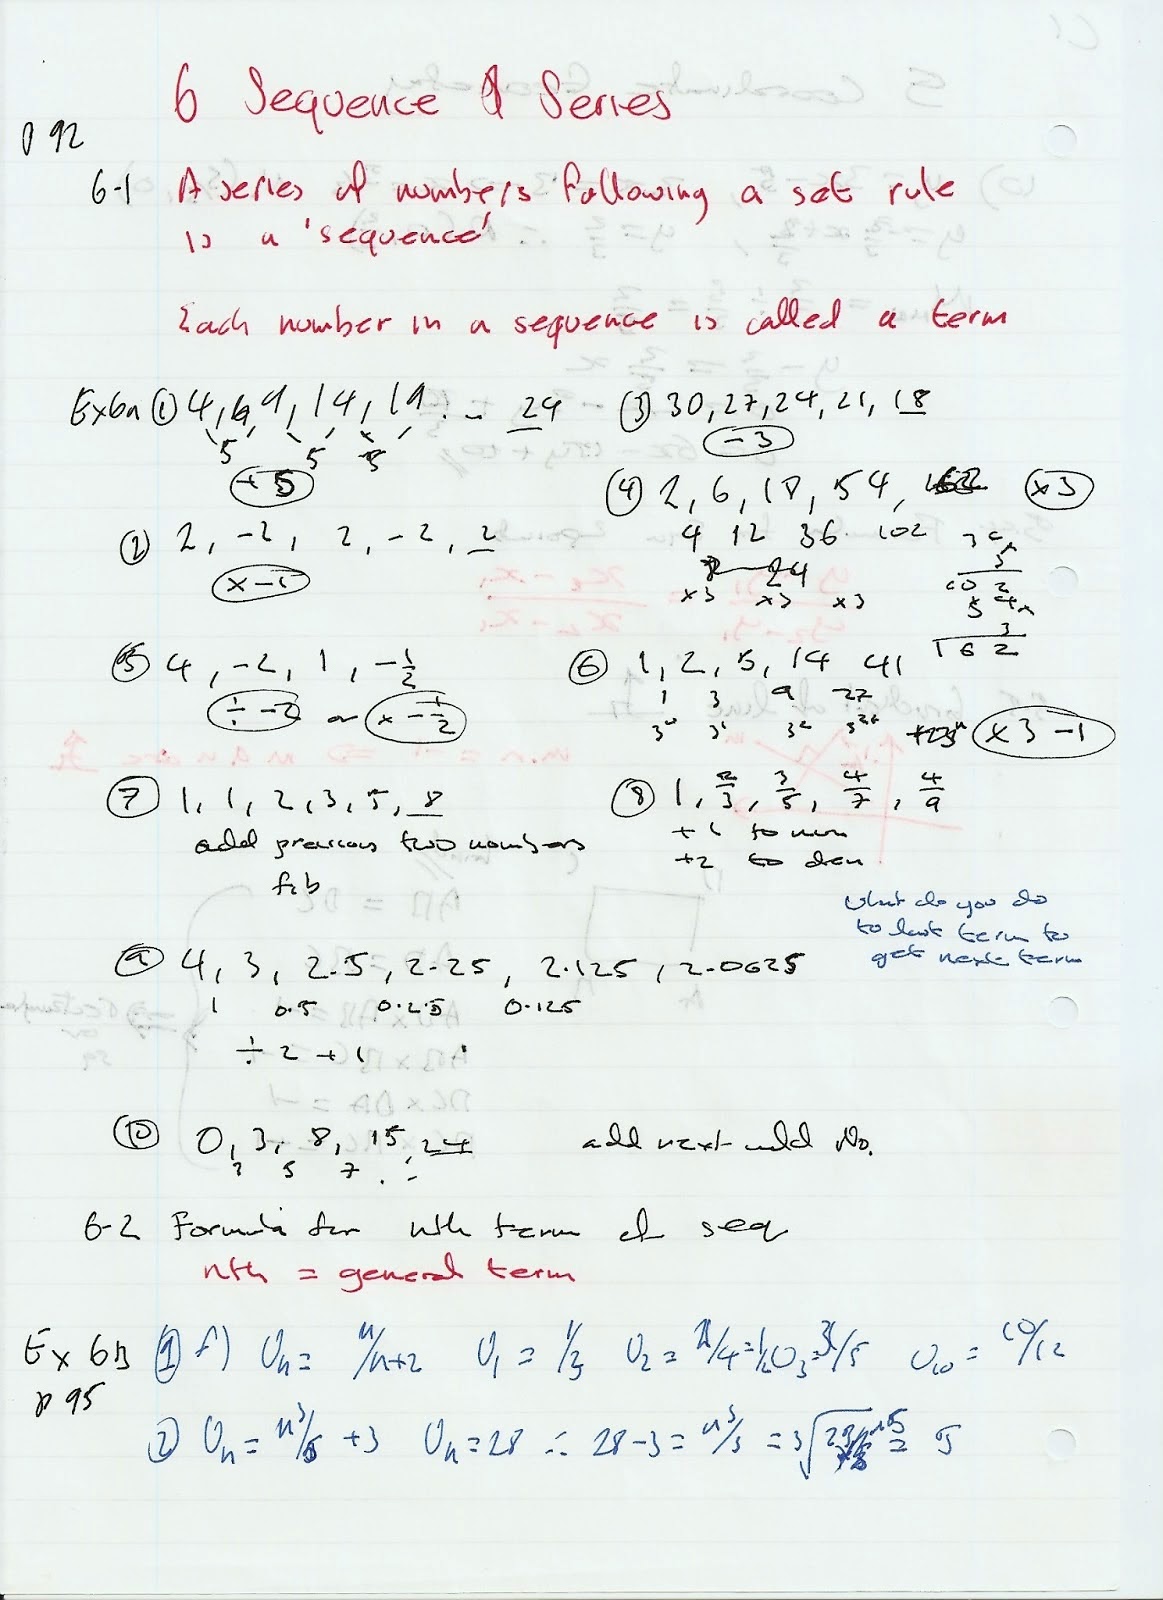 6 Sequence & Series
p 92
6-1 A series of numbers following a set rule
is a 'sequence'
Each number in a sequence is called a term
Ex6a ① 4, 9, 14, 19 . - 24
5 5 5
+5
③ 30, 27, 24, 21, 18
-3
② 2, -2, 2, -2, 2
x-1
④ 2, 6, 18, 54, 162 x3
4 12 36 102
24
x3 x3 x3
3
102
54x
3
162
⑤ 4, -2, 1, -1/2
÷ -2 or x - 1/2
⑥ 1, 2, 5, 14 41
1 3 9 27
3⁰ 3¹ 3²
x3 -1
⑦ 1, 1, 2, 3, 5, 8
add previous two numbers
fib
⑧ 1, 2/3, 3/5, 4/7, 4/9
+1 to num
+2 to den
What do you do
to last term to
get next term
⑨ 4, 3, 2.5, 2.25, 2.125, 2.0625
1 0.5 0.25 0.125
÷ 2 + 1
⑩ 0, 3, 8, 15, 24 add next odd No.
3 5 7
6-2 Formula for nth term of seq
nth = general term
Ex 6B ① f) Un = n/n+2 U1 = 1/3 U2 = 2/4 = 1/2 U3 = 3/5 U10 = 10/12
p 95
② Un = n³/5 + 3 Un = 28 ∴ 28 - 3 = n³/5 = 5